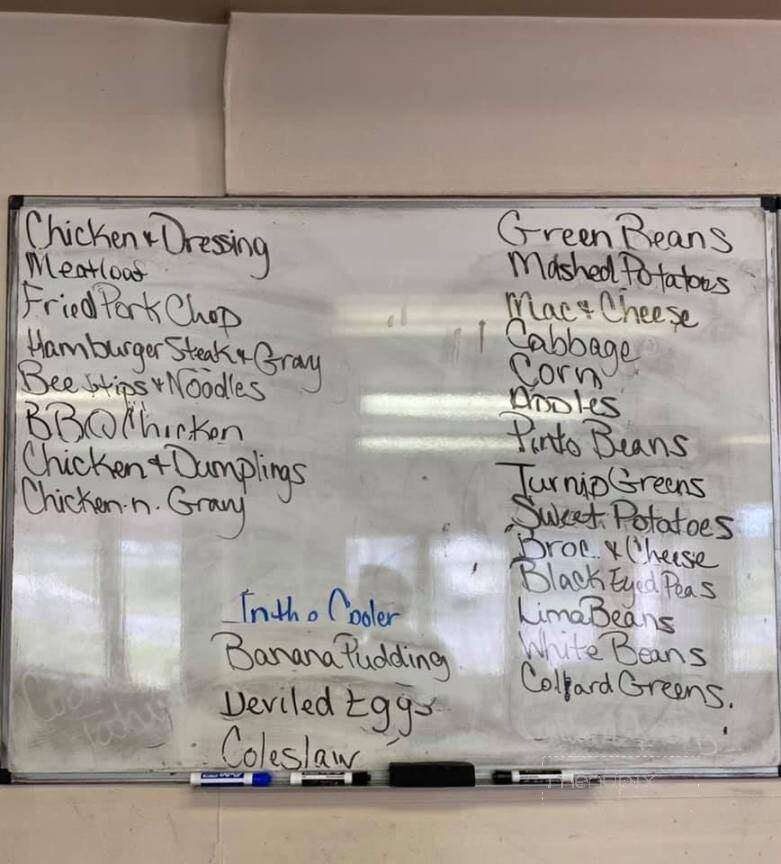 Chicken & Dressing
Meatloaf
Fried Pork Chop
Hamburger Steak & Gravy
Beef tips & Noodles
BBQ Chicken
Chicken & Dumplings
Chicken.n. Gravy
Green Beans
Mashed Potatoes
Mac & Cheese
Cabbage
Corn
Apples
Pinto Beans
Turnip Greens
Sweet Potatoes
Broc. & Cheese
Black Eyed Peas
Lima Beans
White Beans
Collard Greens.
In the Cooler
Banana Pudding
Deviled Eggs
Coleslaw
Today
menupix